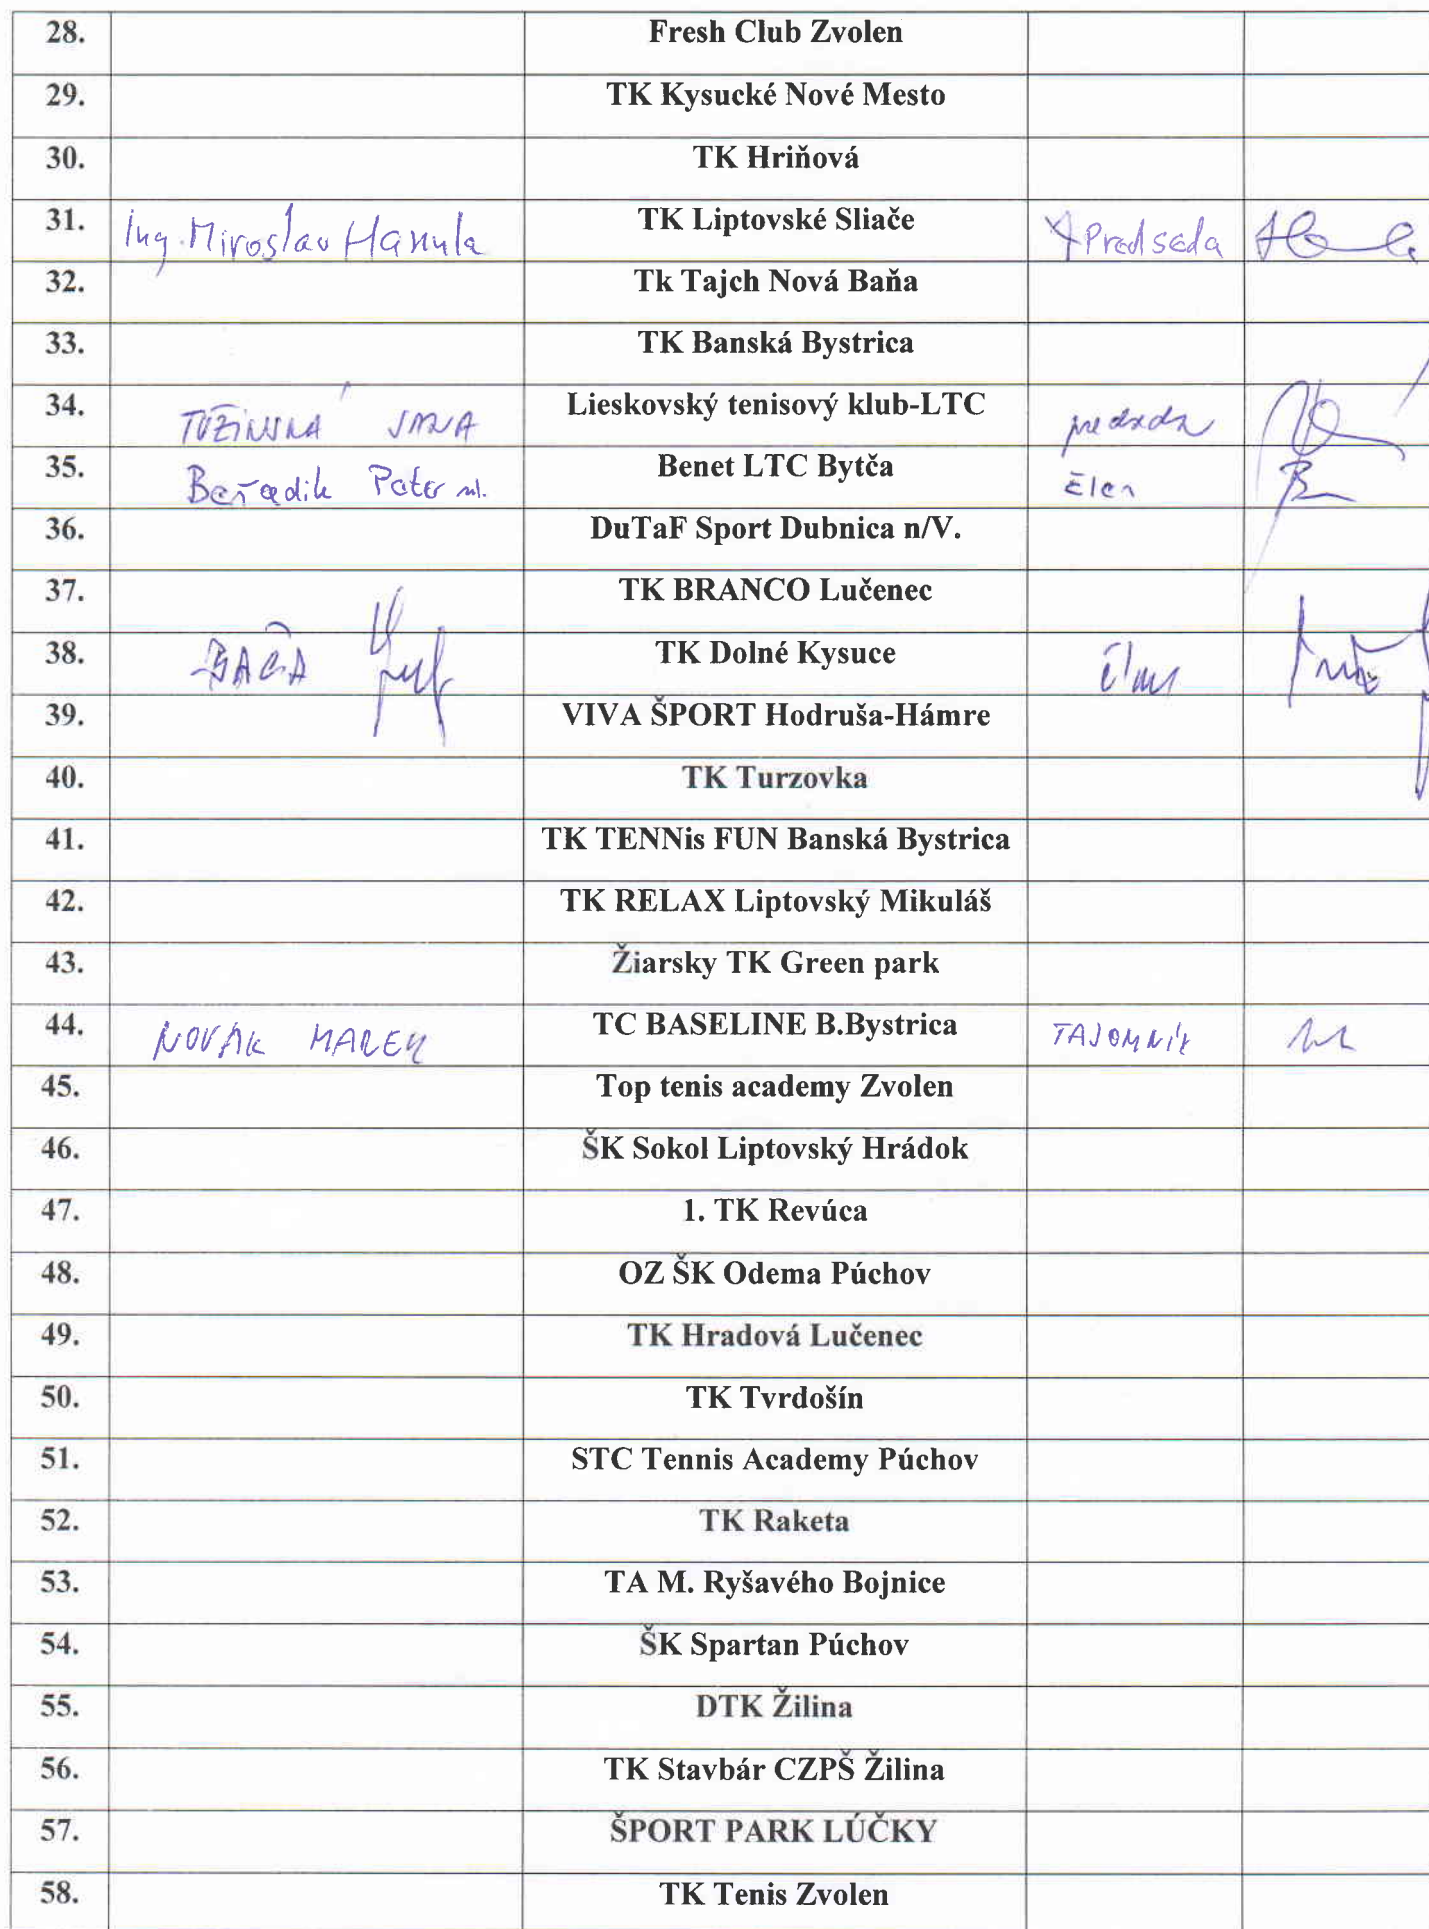 28. Fresh Club Zvolen
29. TK Kysucké Nové Mesto
30. TK Hriňová
31. Ing. Miroslav Hanula TK Liptovské Sliače Predseda
32. Tk Tajch Nová Baňa
33. TK Banská Bystrica
34. Lieskovský tenisový klub-LTC predseda
35. Peter ml. Benet LTC Bytča Člen
36. DuTaF Sport Dubnica n/V.
37. TK BRANCO Lučenec
38. BAČA TK Dolné Kysuce člen
39. VIVA ŠPORT Hodruša-Hámre
40. TK Turzovka
41. TK TENNis FUN Banská Bystrica
42. TK RELAX Liptovský Mikuláš
43. Žiarsky TK Green park
44. NOVÁK MAREK TC BASELINE B.Bystrica TAJOMNÍK
45. Top tenis academy Zvolen
46. ŠK Sokol Liptovský Hrádok
47. 1. TK Revúca
48. OZ ŠK Odema Púchov
49. TK Hradová Lučenec
50. TK Tvrdošín
51. STC Tennis Academy Púchov
52. TK Raketa
53. TA M. Ryšavého Bojnice
54. ŠK Spartan Púchov
55. DTK Žilina
56. TK Stavbár CZPŠ Žilina
57. ŠPORT PARK LÚČKY
58. TK Tenis Zvolen